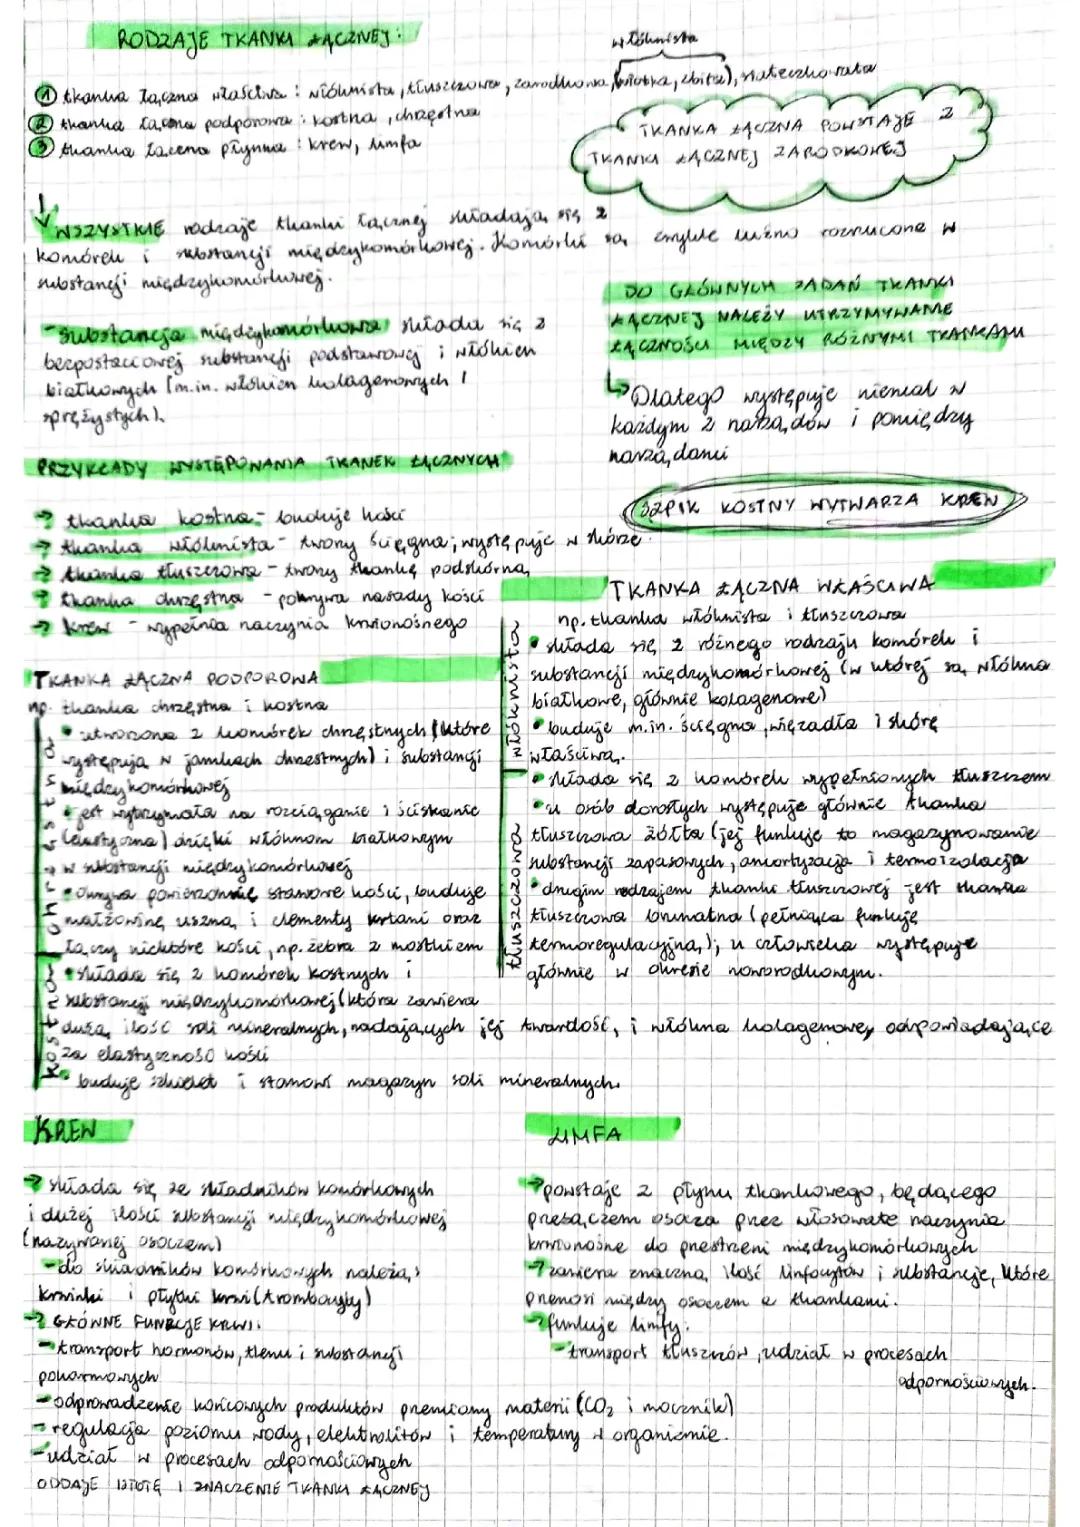 RODZAJE TKANKI ŁĄCZNEJ:
włóknista
① tkanka łączna właściwa: włóknista, tłuszczowa, zarodkowa, (wiotka, zbita), siateczkowata
② tkanka łączna podporowa: kostna, chrzęstna
③ tkanka łączna płynna: krew, limfa
TKANKA ŁĄCZNA POWSTAJE Z
TKANKI ŁĄCZNEJ ZARODKOWEJ
WSZYSTKIE rodzaje tkanki łącznej składają się z
komórek i substancji międzykomórkowej. Komórki są zwykle luźno rozrzucone w
substancji międzykomórkowej.
- Substancja międzykomórkowa składa się z
bezpostaciowej substancji podstawowej i włókien
białkowych (m.in. włókien kolagenowych i
sprężystych).
DO GŁÓWNYCH ZADAŃ TKANKI
ŁĄCZNEJ NALEŻY UTRZYMYWANIE
ŁĄCZNOŚCI MIĘDZY RÓŻNYMI TKANKAMI
↳ Dlatego występuje niemal w
każdym z narządów i pomiędzy
narządami
SZPIK KOSTNY WYTWARZA KREW
PRZYKŁADY WYSTĘPOWANIA TKANEK ŁĄCZNYCH
→ tkanka kostna - buduje kości
→ tkanka włóknista - tworzy ścięgna; występuje w skórze
→ tkanka tłuszczowa - tworzy tkankę podskórną
→ tkanka chrzęstna - pokrywa nasady kości
→ krew - wypełnia naczynia krwionośnego
TKANKA ŁĄCZNA PODPOROWA
np. tkanka chrzęstna i kostna
chrzęstna
• utworzona z komórek chrzęstnych (które
występują w jamkach chrzęstnych) i substancji
międzykomórkowej
• jest wytrzymała na rozciąganie i ściskanie
(elastyczna) dzięki włóknom białkowym
w substancji międzykomórkowej
• okrywa powierzchnię stawowe kości, buduje
małżowinę uszną, i elementy krtani oraz
łączy niektóre kości, np. żebra z mostkiem
kostna
• składa się z komórek kostnych i
substancji międzykomórkowej (która zawiera
dużą ilość soli mineralnych, nadających jej twardość, i włókna kolagenowe, odpowiadające
za elastyczność kości
• buduje szkielet i stanowi magazyn soli mineralnych.
TKANKA ŁĄCZNA WŁAŚCIWA
np. tkanka włóknista i tłuszczowa
włóknista
• składa się z różnego rodzaju komórek i
substancji międzykomórkowej (w której są włókna
białkowe, głównie kolagenowe)
• buduje m.in. ścięgna, więzadła i skórę
właściwą.
tłuszczowa
• składa się z komórek wypełnionych tłuszczem
• u osób dorosłych występuje głównie tkanka
tłuszczowa żółta (jej funkcje to magazynowanie
substancji zapasowych, amortyzacja i termoizolacja
• drugim rodzajem tkanki tłuszczowej jest tkanka
tłuszczowa brunatna (pełniąca funkcję
termoregulacyjną,); u człowieka występuje
głównie w okresie noworodkowym.
KREW
→ składa się ze składników komórkowych
i dużej ilości substancji międzykomórkowej
(nazywanej osoczem)
- do składników komórkowych należą,
krwinki i płytki krwi (trombocyty)
→ GŁÓWNE FUNKCJE KRWI:
- transport hormonów, tlenu i substancji
pokarmowych
- odprowadzenie końcowych produktów przemiany materii (CO₂ i mocznik)
- regulacja poziomu wody, elektrolitów i temperatury w organizmie.
- udział w procesach odpornościowych
ODDAJE ISTOTĘ I ZNACZENIE TKANKI ŁĄCZNEJ
LIMFA
→ powstaje z płynu tkankowego, będącego
przesączem osocza przez włosowate naczynia
krwionośne do przestrzeni międzykomórkowych
→ zawiera znaczną ilość limfocytów i substancje, które
przenosi między osoczem a tkankami.
→ funkcje limfy:
- transport tłuszczów, udział w procesach
odpornościowych.